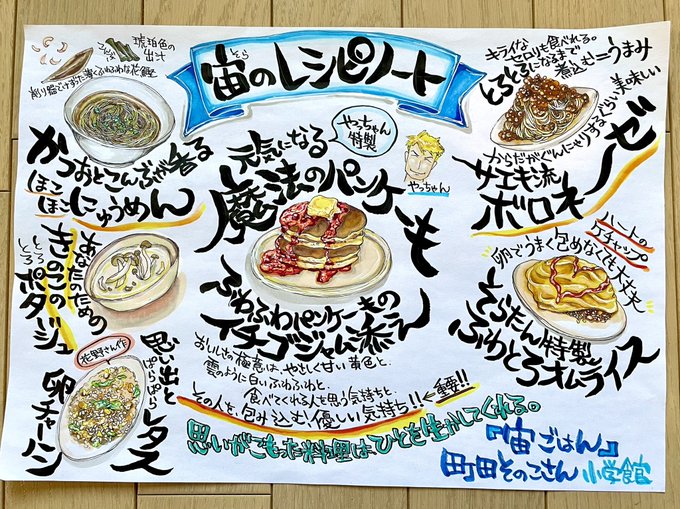 宙のレシピノート
そら
琥珀色の
出汁
こんぶ
削り節でけずった薄くふわふわな花鰹
かつおとこんぶが香る
ほこほこにゅうめん
やっちゃん
特製
元気になる
魔法のパンケーキ
やっちゃん
ふわふわパンケーキの
イチゴジャム添え
おいしさの極意は、やさしく甘い黄色と
雲のように白いふわふわと、
食べてくれる人を思う気持ちと、
その人を、包み込む、優しい気持ち!!←重要!!
キライな
セロリも食べれる。
とろとろになるまで
煮込む=うまみ
からだがぐんにゃりするぐらい美味しい
サエキ流
ボロネーゼ
ハートの
ケチャップ
卵でうまく包めなくても大丈夫
そらたん特製
ふわとろオムライス
あなたのための
とろとろ
きのこの
ポタージュ
花野さん作
思い出と
ぱらぱらと
レタス
卵チャーハン
思いがこもった料理は、ひとを生かしてくれる。
『宙ごはん』
町田そのこさん 小学館